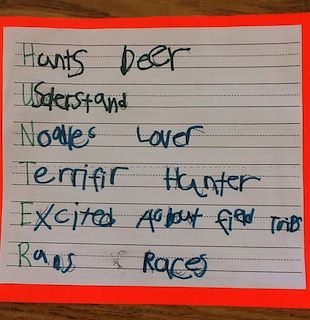 Hunts Deer
Understand
Noodles Lover
Terrific Hunter
Excited About field Trips
Runs Races